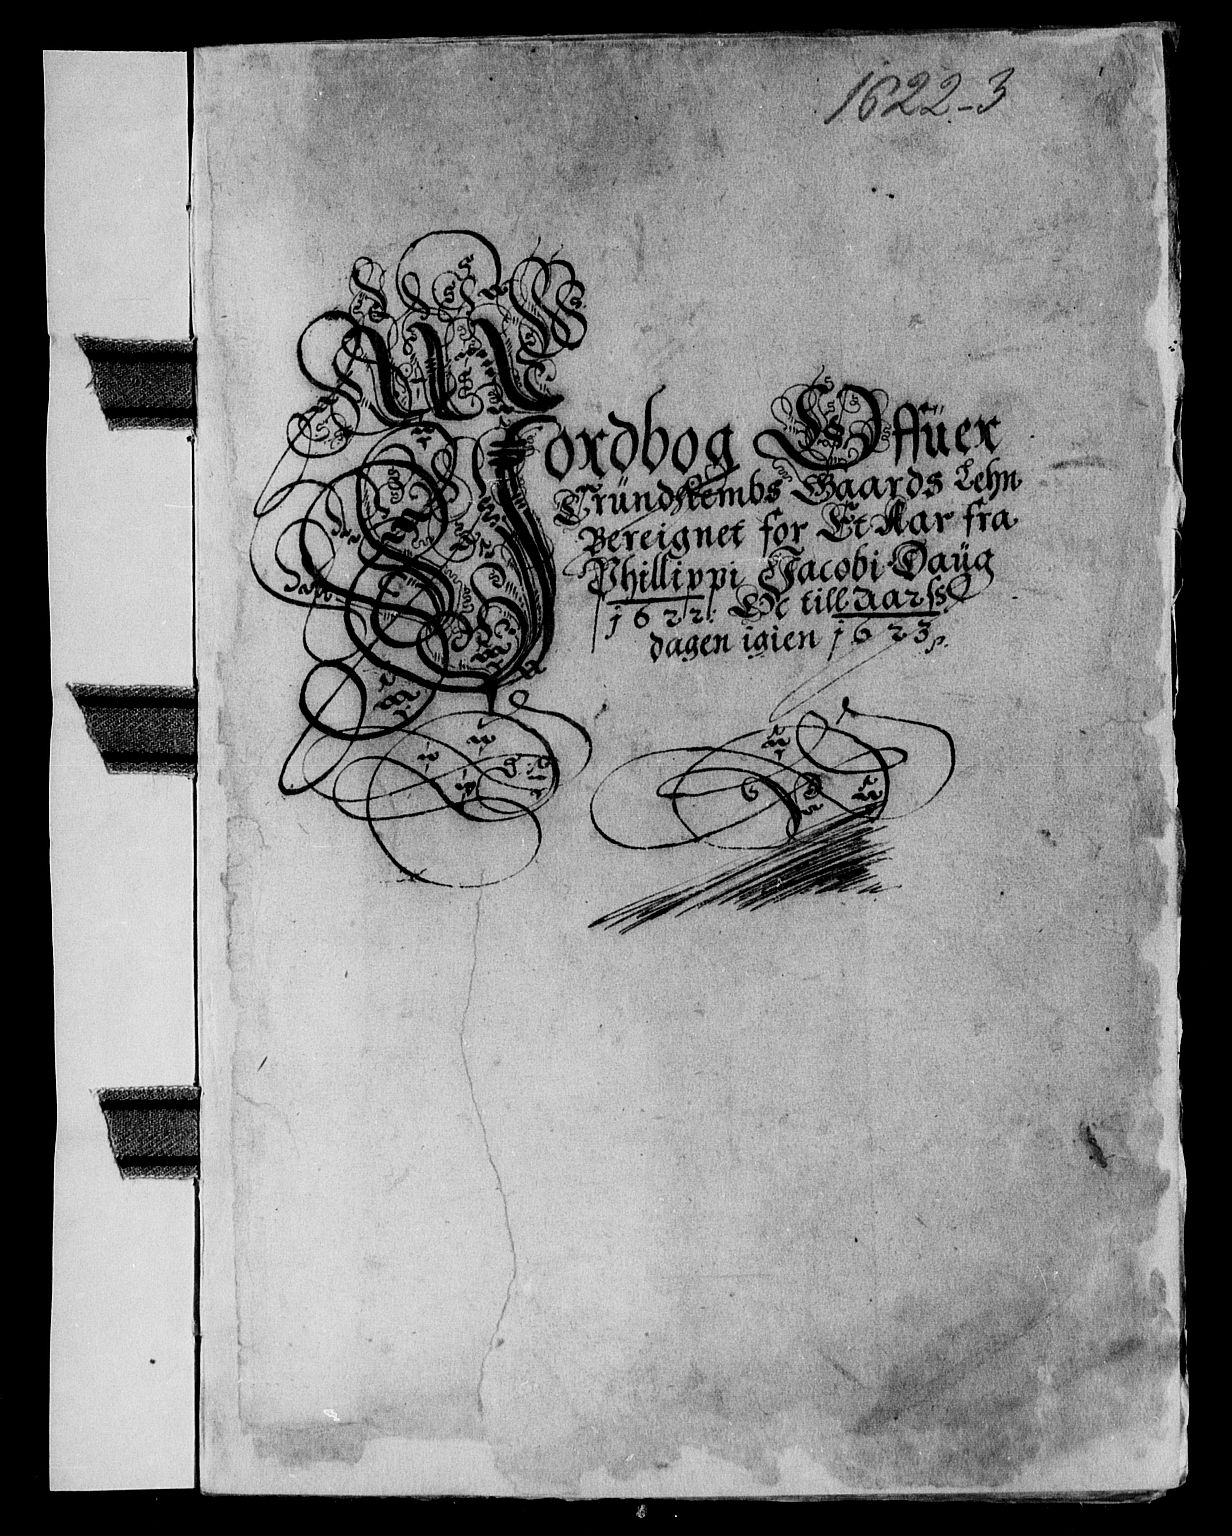 1622-3
Jordbog Offüer
Tründhembs Gaards Lehn
Bereignet for Et Aar fra
Phillippi Jacobi Daüg
1622. Oc till Aarss
dagen igien 1623.